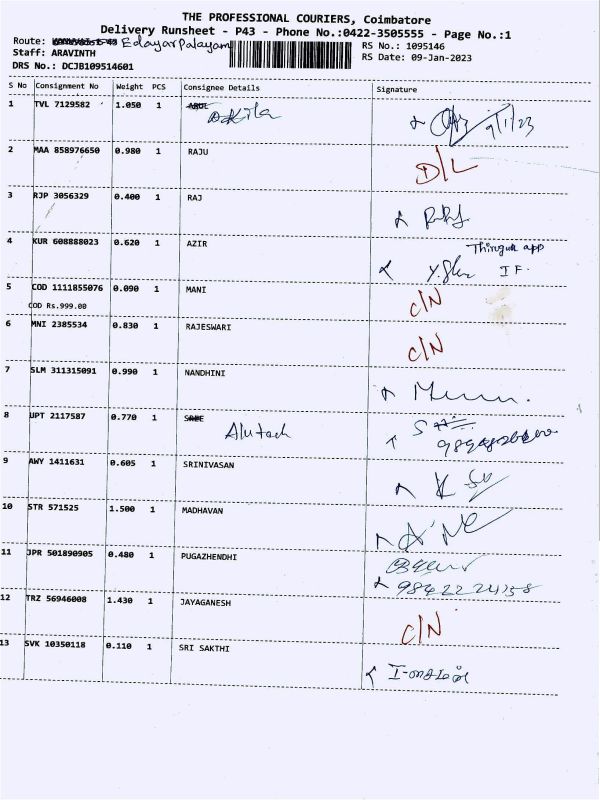 THE PROFESSIONAL COURIERS, Coimbatore
Delivery Runsheet - P43 - Phone No.:0422-3505555 - Page No.:1
Route: Edayar Palayam RS No.: 1095146
Staff: ARAVINTH RS Date: 09-Jan-2023
DRS No.: DCJB109514601
S No Consignment No Weight PCS Consignee Details Signature
1 TVL 7129582 1.050 1 9/1/23
2 MAA 858976650 0.980 1 RAJU D/L
3 RJP 3056329 0.400 1 RAJ
4 KUR 608888023 0.620 1 AZIR
5 COD 1111855076 0.090 1 MANI C/N
COD Rs.999.00
6 MNI 2385534 0.830 1 RAJESWARI C/N
7 SLM 311315091 0.990 1 NANDHINI
8 UPT 2117587 0.770 1
9 AWY 1411631 0.605 1 SRINIVASAN
10 STR 571525 1.500 1 MADHAVAN
11 JPR 501890905 0.480 1 PUGAZHENDHI
12 TRZ 56946008 1.430 1 JAYAGANESH C/N
13 SVK 10350118 0.110 1 SRI SAKTHI